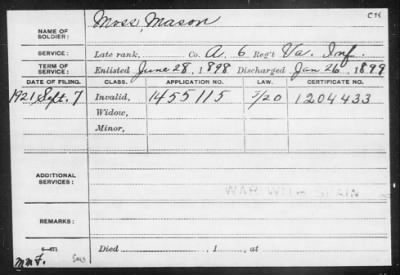 C76
NAME OF SOLDIER: Moss, Mason
SERVICE: Late rank, Co. A, 6 Reg't Va. Inf.
TERM OF SERVICE: Enlisted June 28, 1898 Discharged Jan 26, 1899
DATE OF FILING. CLASS. APPLICATION NO. LAW. CERTIFICATE NO.
1921 Sept. 7 Invalid, 1455115 5/20 1204433
Widow,
Minor,
ADDITIONAL SERVICES:
WAR WITH SPAIN
REMARKS:
Died 1 , at